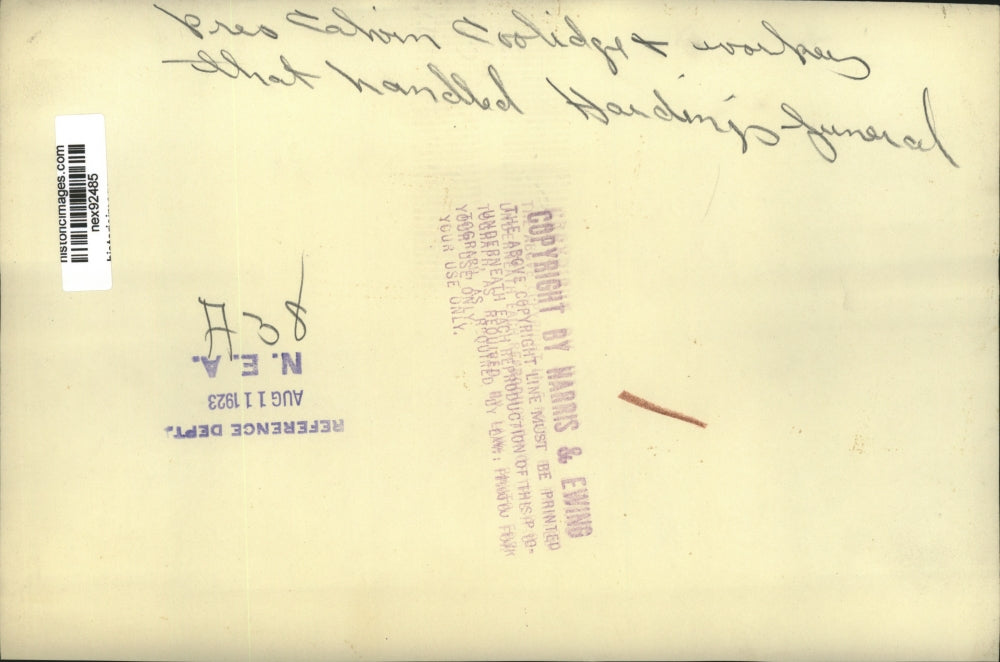 Pres Calvin Coolidge & workers
that handled Harding's funeral
historicimages.com
nex92485
N. E. A.
AUG 11 1923
REFERENCE DEPT.
COPYRIGHT BY HARRIS & EWING
THE ABOVE COPYRIGHT LINE MUST BE PRINTED
UNDERNEATH EACH REPRODUCTION OF THIS PHO-
TOGRAPH AS REQUIRED BY LAW;
YOUR USE ONLY.